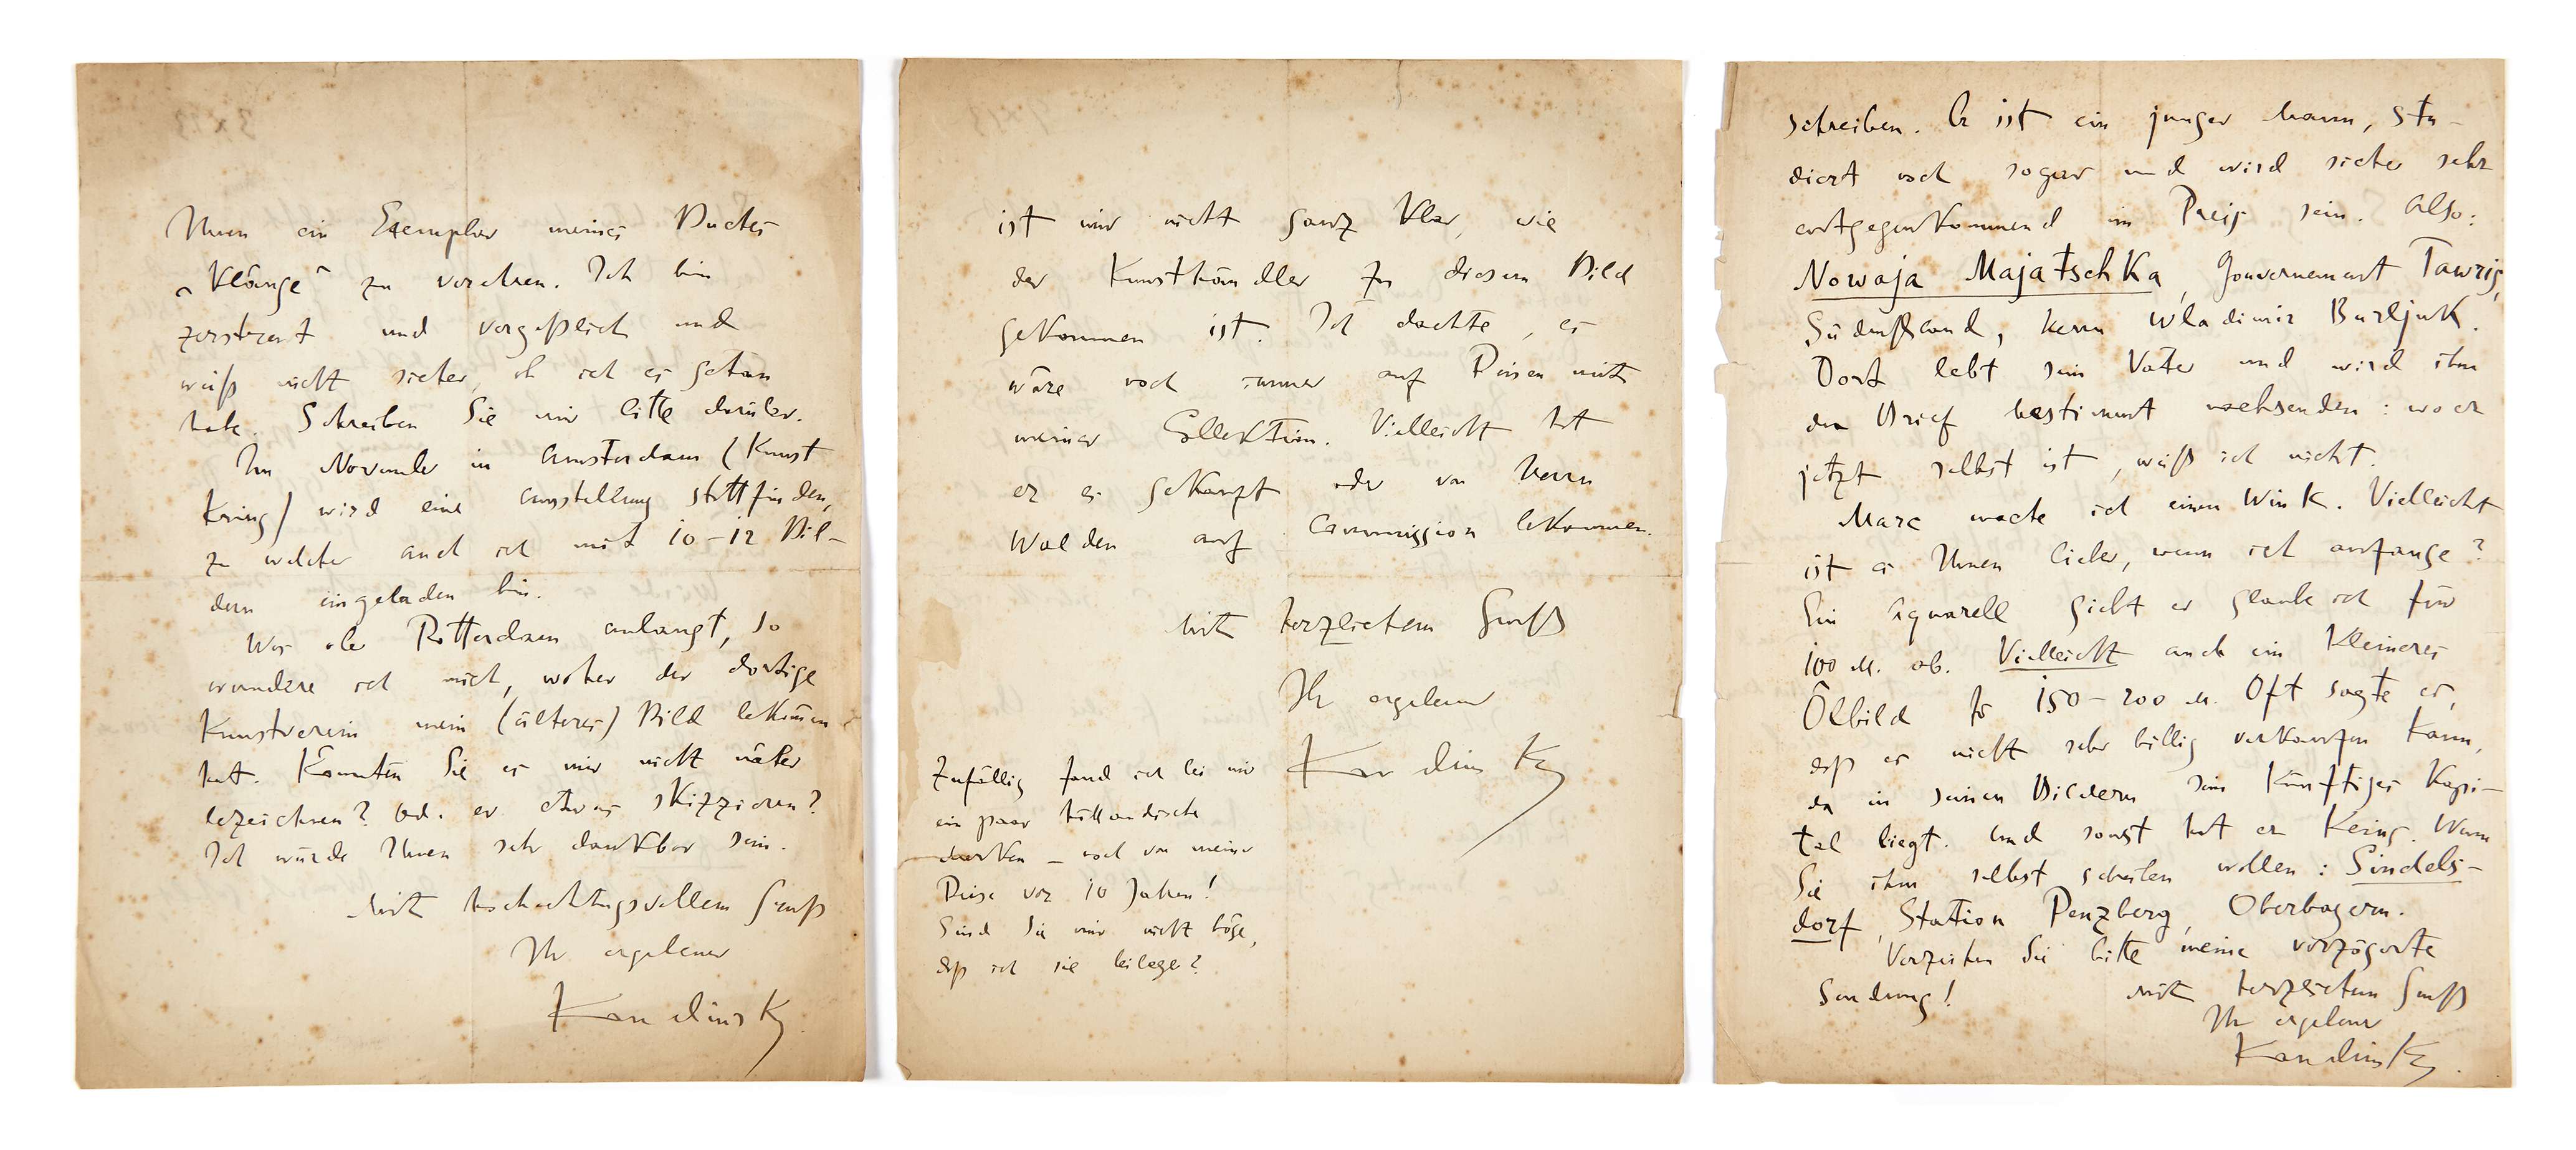 Ihnen ein Exemplar meines Buches
„Klänge“ zu verehren. Ich bin
zerstreut und vergeßlich und
weiß nicht sicher, ob ich es getan
habe. Schreiben Sie mir bitte darüber.
Im November in Amsterdam (Kunst
Kring) wird eine Ausstellung stattfinden,
zu welcher auch ich mit 10–12 Bil-
dern eingeladen bin.
Was aber Rotterdam anlangt, so
wundere ich mich, woher der dortige
Kunstverein mein (älteres) Bild bekommen
hat. Könnten Sie es mir nicht näher
bezeichnen? Od. er etwas skizzieren?
Ich würde Ihnen sehr dankbar sein.
Mit hochachtungsvollem Gruß
Ihr ergebener
Kandinsky.
ist mir nicht ganz klar, wie
der Kunsthändler zu diesem Bild
gekommen ist. Ich dachte, es
wäre noch immer auf Reisen mit
meiner Collektion. Vielleicht hat
er es gekauft oder von Herrn
Walden auf Commission bekommen.
Mit herzlichem Gruß
Ihr ergebener
Kandinsky
Zufällig fand ich bei mir
ein paar holländische
Marken – noch von meiner
Reise vor 10 Jahren!
Sind Sie mir nicht böse,
daß ich sie beilege?
schreiben. Er ist ein junger Mann, stu-
diert noch sogar und wird sicher sehr
entgegenkommend im Preis sein. Also:
Nowaja Majatschka, Gouvernement Tawrij,
Südrußland, Herrn Wladimir Burljuk.
Dort lebt sein Vater und wird ihm
den Brief bestimmt nachsenden: wo er
jetzt selbst ist, weiß ich nicht.
Marc mache ich einen Wink. Vielleicht
ist es Ihnen lieber, wenn ich anfange?
Ein Aquarell giebt er glaube ich für
100 M. ab. Vielleicht auch ein kleineres
Ölbild für 150–200 M. Oft sagte er,
daß er nicht sehr billig verkaufen kann,
da in seinen Bildern sein künftiges Kapi-
tal liegt. Und sonst hat er keins. Wenn
Sie ihm selbst schreiben wollen: Sindels-
dorf, Station Penzberg, Oberbayern.
Verzeihen Sie bitte meine verzögerte
Sendung! Mit herzlichem Gruß
Ihr ergebener
Kandinsky.